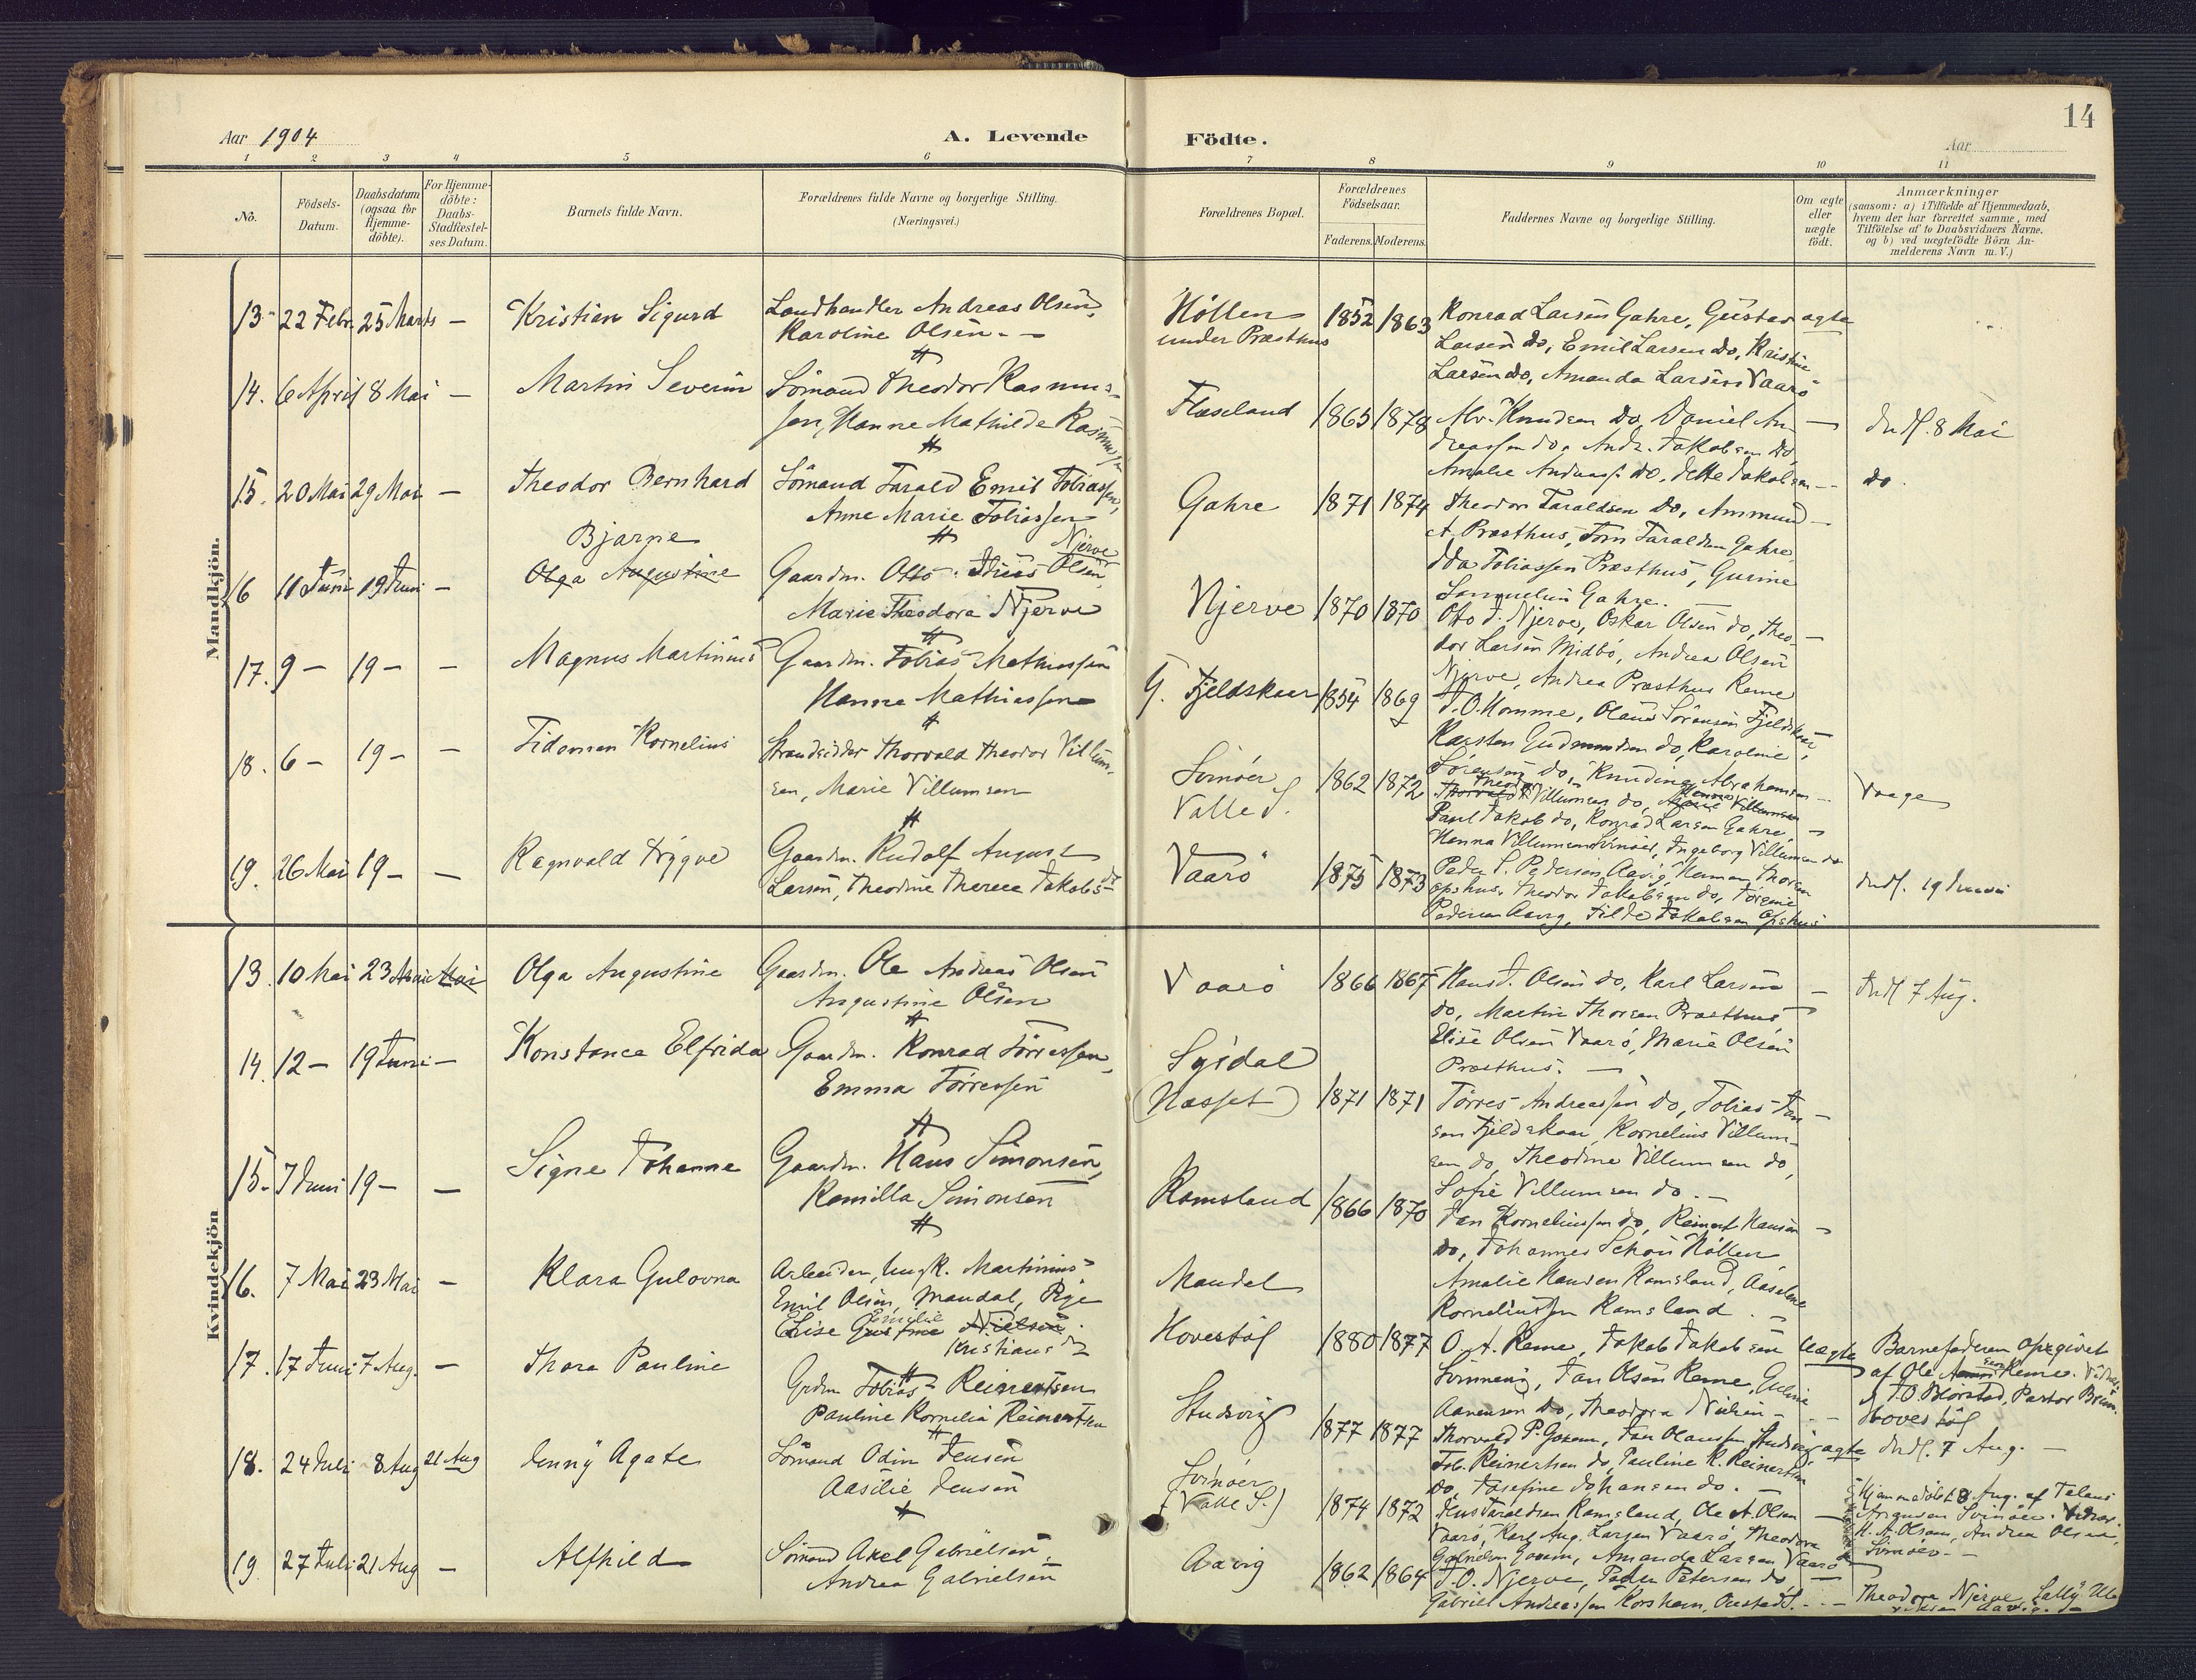 14
Aar 1904
A. Levende Födte.
Aar
1 2 3 4 5 6 7 8 9 10 11
No.
Födsels-Datum.
Daabsdatum (ogsaa for Hjemme-döbte).
For Hjemme-döbte: Daabs-Stadfæstel-ses Datum.
Barnets fulde Navn.
Forældrenes fulde Navne og borgerlige Stilling.
(Næringsvei.)
Forældrenes Bopæl.
Forældrenes Födselsaar.
Faderens. Moderens.
Faddernes Navne og borgerlige Stilling.
Om ægte eller uægte födt.
Anmærkninger
(saasom: a) i Tilfælde af Hjemmedaab,
hvem der har forrettet samme, med
Tilföielse af to Daabsvidners Navne.
og b) ved uægtefödte Börn An-
melderens Navn m.V.)
Mandkjön.
13. 22 Febr. 25 Marts — Kristian Sigurd Landhandler Andreas Olsen, Karoline Olsen. — Höllen under Præsthus 1852 1863 Konrad Larsen Gahre, Gustav ægte
Larsen do, Emil Larsen do, Kristine
Larsen do, Amanda Larsen Vaarö
14. 6 April 8 Mai — Martin Severin Sömand Theodor Rasmus-
sen, Hanne Mathilde Rasmussen Flæseland 1865 1878 Alv. Knudsen do, Daniel An- — Indl. 8 Mai
dreassen do, Andr. Jakobsen do
Amalie Andreass. do, Jette Jakobsen — do.
15. 20 Mai 29 Mai — Theodor Bernhard Sömand Tarald Emil Tobiassen, Anne Marie Tobiassen Gahre 1871 1874 Theodor Taraldsen do, Ammund —
A. Præsthus, Torn Taraldsen Gahre,
Ida Tobiassen Præsthus, Gurine
Samuelsen Gahre.
16 11 Juni 19 Juni — Bjarne
Olga Augustine Gaardm. Otto Olsen Njerve
Marie Theodora Njerve Njerve 1870 1870 Otto J. Njerve, Oskar Olsen do, Theo- —
dor Larsen Midbö, Andrea Olsen
Njerve, Andrea Præsthus Reme
17. 9 — 19 — — Magnus Martinius Gaardm. Tobias Mathiassen
Hanne Mathiassen Y. Fjeldskaar 1854 1869 J. O. Homme, Olaus Sörensen Fjeldskaar,
Karsten Gudmundsen do, Karoline
Sörensen do, Knudine Abrahamsen —
18. 6 — 19 — — Tideman Kornelius Strandsidder Thorvald Theodor Villum-
sen, Marie Villumsen Svinöer Valle S. 1862 1872 Theodor Villumsen do, Hanna Villumsen Vaage
Paul Jakob do, Konrad Larsen Gahre, —
Hanna Villumsen Svinöer, Ingeborg Villumsen do
19. 26 Mai 19 — — Ragnvald Trygve Gaardm. Rudolf August
Larsen, Theodine Therese Jakobs- Vaarö 1875 1873 Peder S. Pedersen Aavig, Herman Thorsen Indl. 19 Juni
Opshus, Theodor Jakobsen do, Törgine
Pedersen Aavig, Tilde Jakobsen Opshus
Kvindekjön
13. 10 Mai 23 Mai Mai Olga Augustine Gaardm. Ole Andreas Olsen
Augustine Olsen Vaarö 1866 1867 Hans J. Olsen do, Karl Larsen — Indl 7 Aug.
do, Martin Thorsen Præsthus
Elise Olsen Vaarö, Marie Olsen
Præsthus. —
14. 12 — 19 Juni — Konstance Elfrida Gaardm. Konrad Törressen,
Emma Törressen Sysdal (Næsset) 1871 1871 Törres Andreassen do, Tobias Jan- —
sen Fjeldskaar, Kornelius Villum-
sen do, Theodine Villumsen do,
Sofie Villumsen do. —
15. 7 Juni 19 — — Signe Johanne Gaardm. Hans Simonsen,
Kamilla Simonsen Ramsland 1866 1870 Jan Korneliussen do, Reinert Hansen —
do, Johannes Schou Höllen
Amalie Hansen Ramsland, Aaselene
Korneliussen Ramsland. —
16. 7 Mai 23 Mai — Klara Gulovna Arbeider, Ungk. Martinius
Emil Olsen, Mandal, Pige
Elise Nielsen
Kristians Mandal
Hovestöl 1880 1877 O. A. Reme, Jakob Jakobsen uægte Barnefaderen opgivet
Svinneng, Jan Olsen Reme, Guline af Ole Reme.
Aanensen do, Theodora Nielsen — J. O. Blörstad, Pastor Bruun.
Hovestöl
17. 17 Juni 7 Aug. — Thora Pauline Grdm Tobias Reinertsen
Pauline Kornelia Reinertsen Studsvig 1877 1877 Thorvald P. Gossem, Jan Olaussen Studsvig ægte Indl. 7 Aug. —
Tob. Reinertsen do, Pauline K. Reinertsen
do, Josefine Johansen do. —
18. 24 Juli 8 Aug 21 Aug Jenny Agate Sömand Odin Jensen
Aasilie Jensen Svinöer (Valle S.) 1874 1872 Jens Taraldsen Ramsland, Ole A. Olsen — Hjemmedöbt 8 Aug. af Telaus
Vaarö, Karl Aug. Larsen Vaarö, Theodora Asgensen Svinöer.
Gabrielsen Gossem, Amanda Larsen Vaarö H. A. Olsen, Andrea Olsen,
Svinöer. —
19. 27 Juli 21 Aug — Alfhild Sömand Axel Gabrielsen
Andrea Gabrielsen Aavig 1862 1864 J. O. Njerve, Peder Petersen do —
Gabriel Andreassen Korshavn, — Theodora Njerve, Sally
Aavig. —